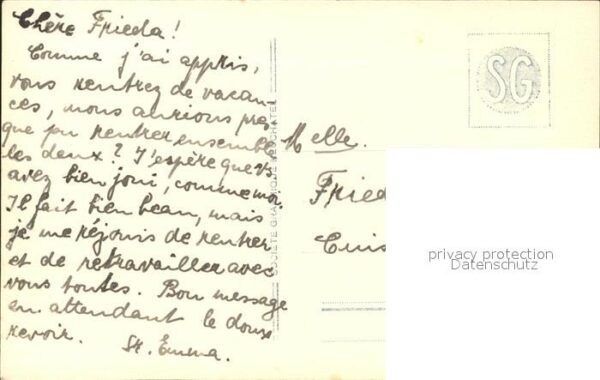 Chère Frieda!
Comme j'ai appris,
vous rentrez de vacan-
ces, nous aurions pres-
que pu rentrer ensemble
les deux? J'espère que v.
avez bien joui, comme moi.
Il fait bien beau, mais
je me réjouis de rentrer
et de retravailler avec
vous toutes. Bon message
en attendant le doux
revoir.
Sr. Emma.
SOCIÉTÉ GRAPHIQUE NEUCHATEL
SG
Melle.
Frieda
Cuis
privacy protection
Datenschutz